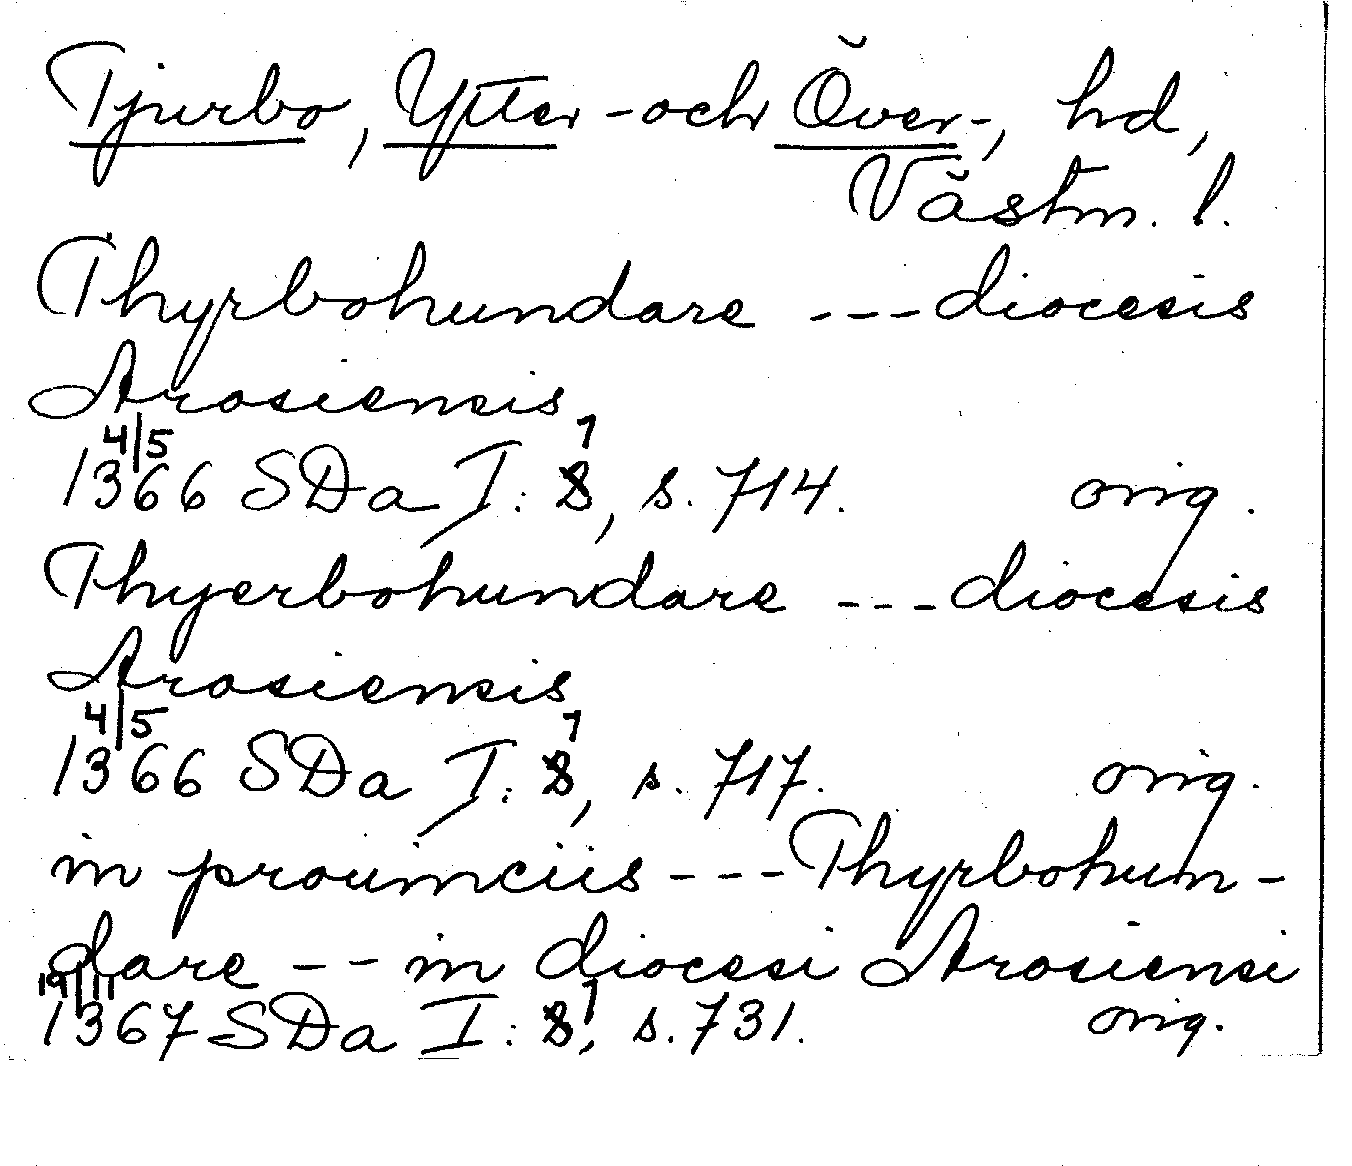 Tjurbo, Ytter- och Över-, hd,
Västm. l.
Thyrbohundare --- diocesis
Arosiensis
4/5 7
1366 SDa I: 8, s. 714. orig.
Thyerbohundare --- diocesis
Arosiensis
4/5 7
1366 SDa I: 8, s. 717. orig.
in prouinciis --- Thyrbohun-
dare -- in diocesi Arosiensi
19/11 7
1367 SDa I: 8, s. 731. orig.